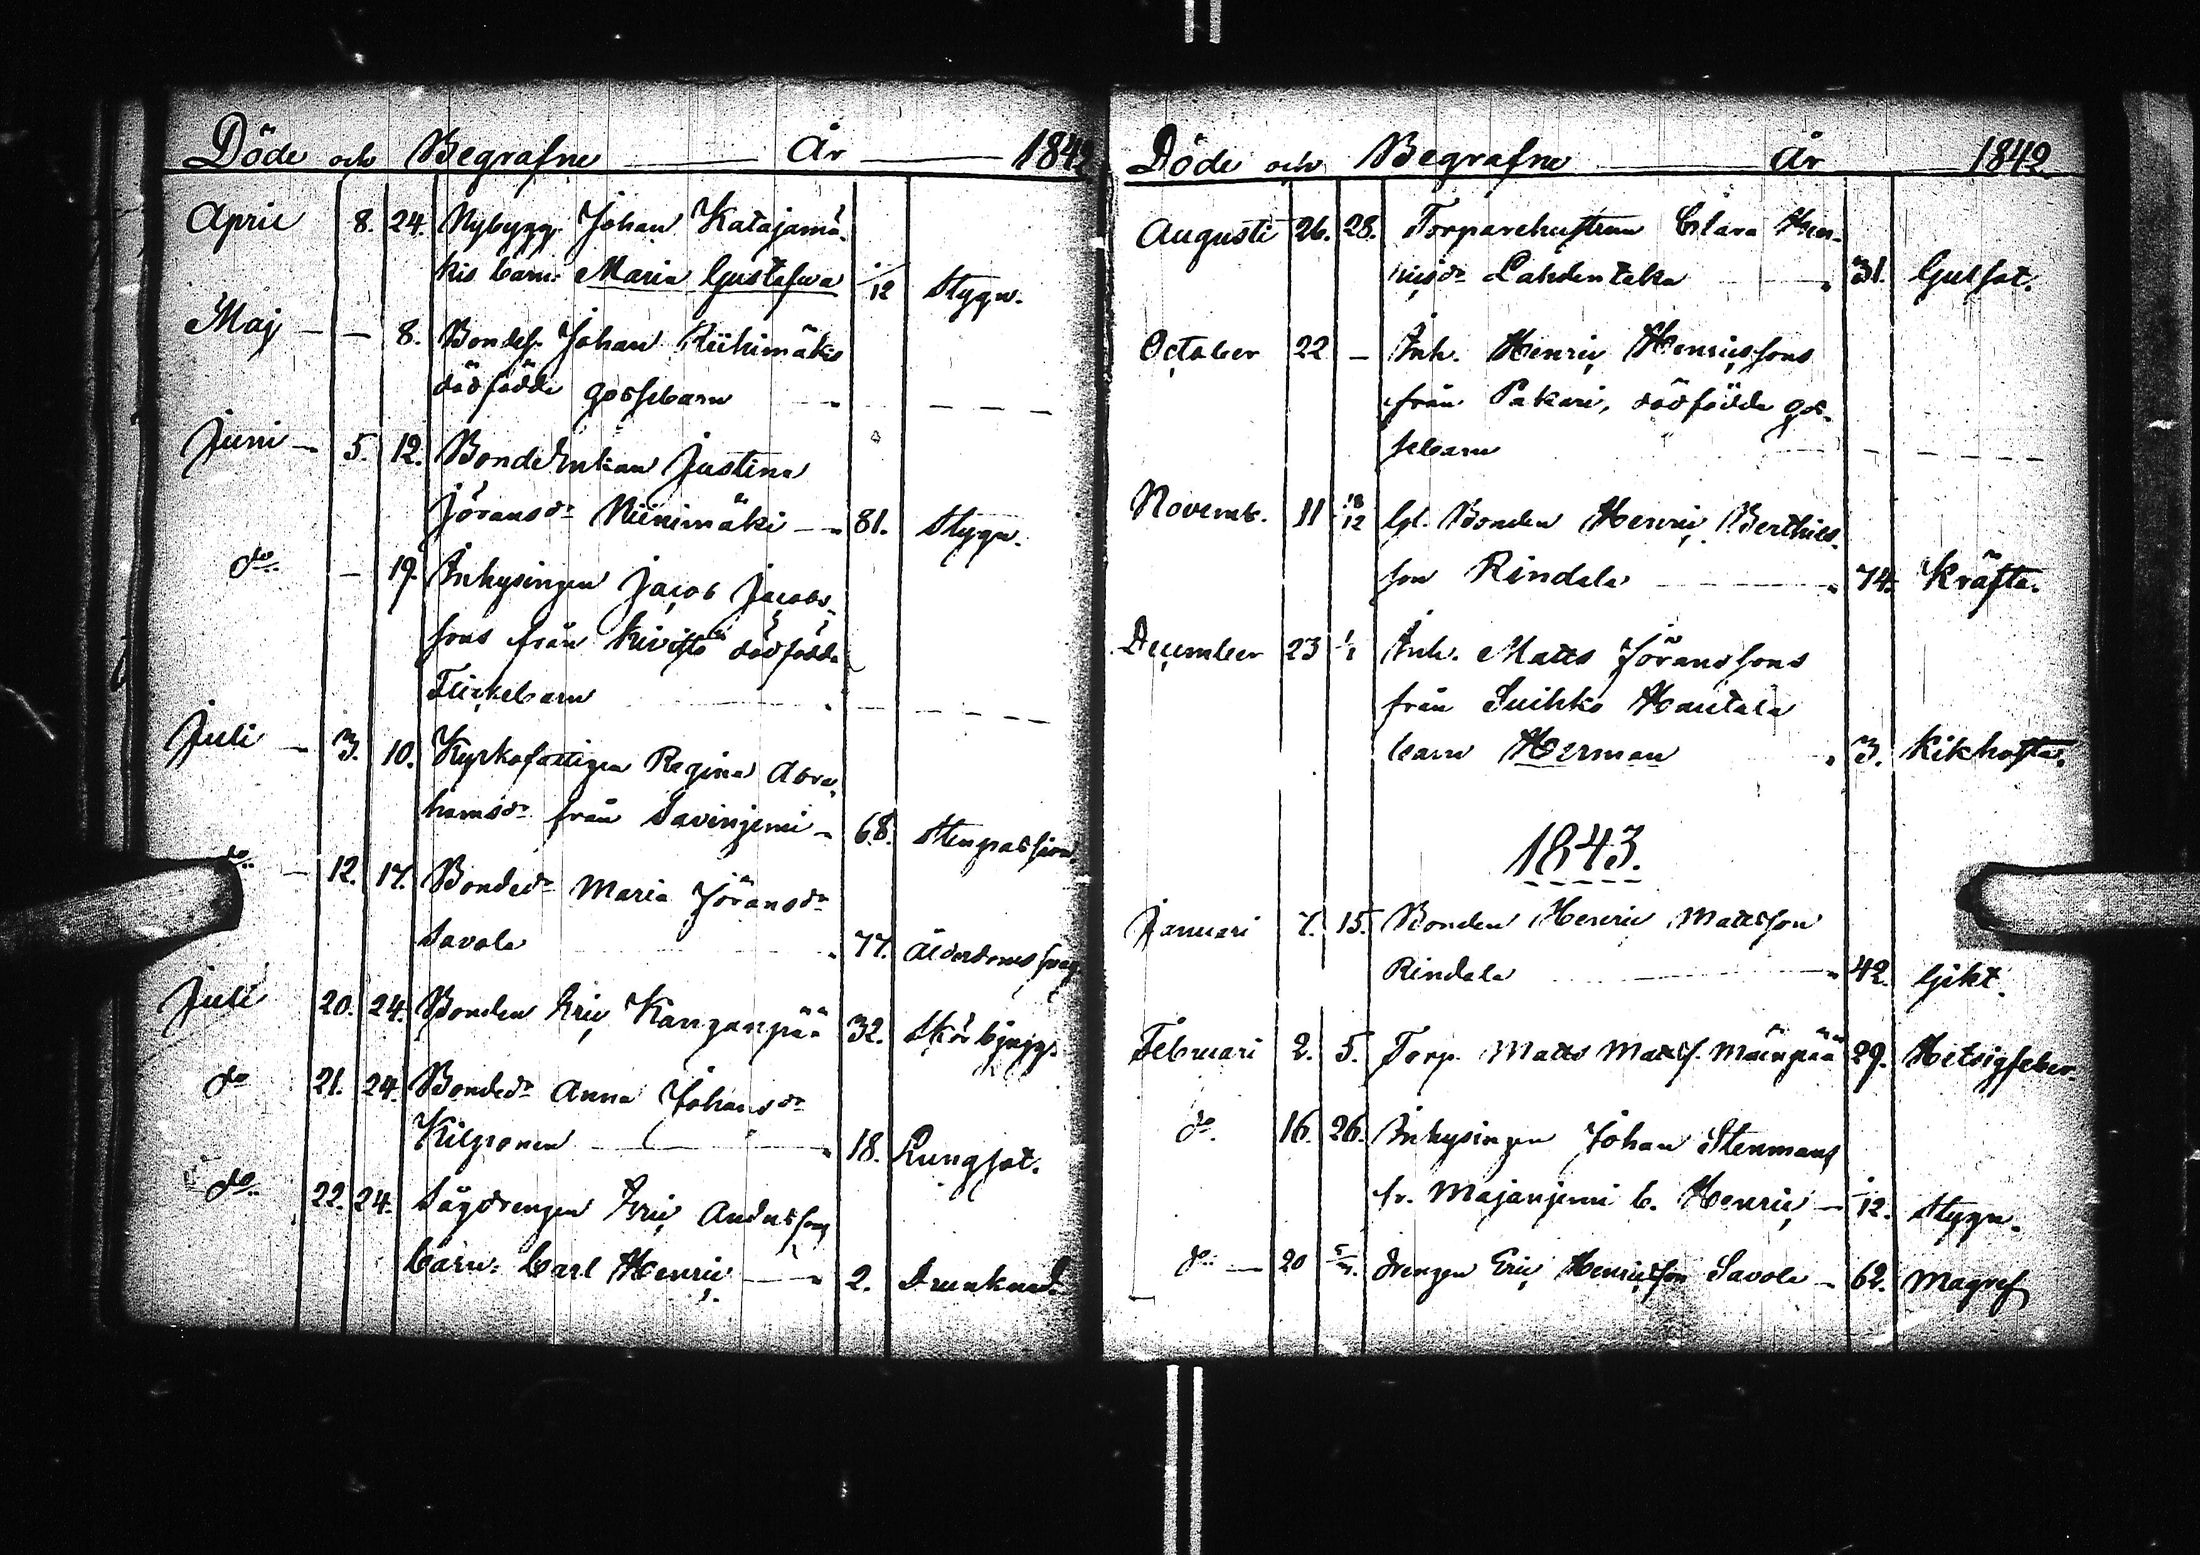 Döde och Begrafne År 1842
April 8. 24. Nybygg. Johan Katajamä-
kis barn: Maria Gustafwa /12 Stygn.
Maj — — 8. Bondes. Johan Riihimäkis
dödfödde gossebarn
Juni — 5. 12. Bonde Enkan Justina
Jöransdr Niinimäki — 81. Stygn.
do — 19. Inhysingen Jacob Jacobs-
sons från Kivistö dödfödda
Flickebarn
Juli — 3. 10. Kyrkofattigen Regina Abra-
hamsdr från Savinjemi — 68. Stenpassion
do — 12. 17. Bondedr Maria Jöransdr
Savola 77. Ålderdomssvag
Juli 20. 24. Bonden Eric Kanganpää 32. Skörbjugg.
do 21. 24. Bondedr Anna Johansdr
Kilponen 18. Lungsot.
do 22. 24. Sågdrengen Eric Anderssons
barn: Carl Henric — 2. Drunknad.
Döde och Begrafne År 1842.
Augusti 26. 28. Torparehustrun Clara Hen-
ricsdr Lahdentaka 31. Gulsot.
October 22 — Inh. Henric Henricssons
från Pakari, dödfödde gos-
sebarn
Novemb. 11 18/12 Gl. Bonden Henric Berthils-
son Rindala 74. Kräfta.
December 23 1/1 Inh. Matts Jöranssons
från Suihko Hautala
barn Herman 3. Kikhosta.
1843.
Januari 7. 15. Bonden Henric Mattsson
Rindala 42. Gikt.
Februari 2. 5. Torp. Matts Mattss. Mäenpää 29. Hetsigfeber.
do. 16. 26. Inhysingen Johan Stenmans
fr. Majanjemi b. Henric — /12. Stygn.
do — 20 Drengen Eric Henricsson Savola — 62. Magref